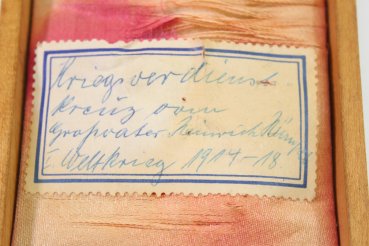 Kriegsverdienst
kreuz vom
Großvater Heinrich
I Weltkrieg 1914-18.